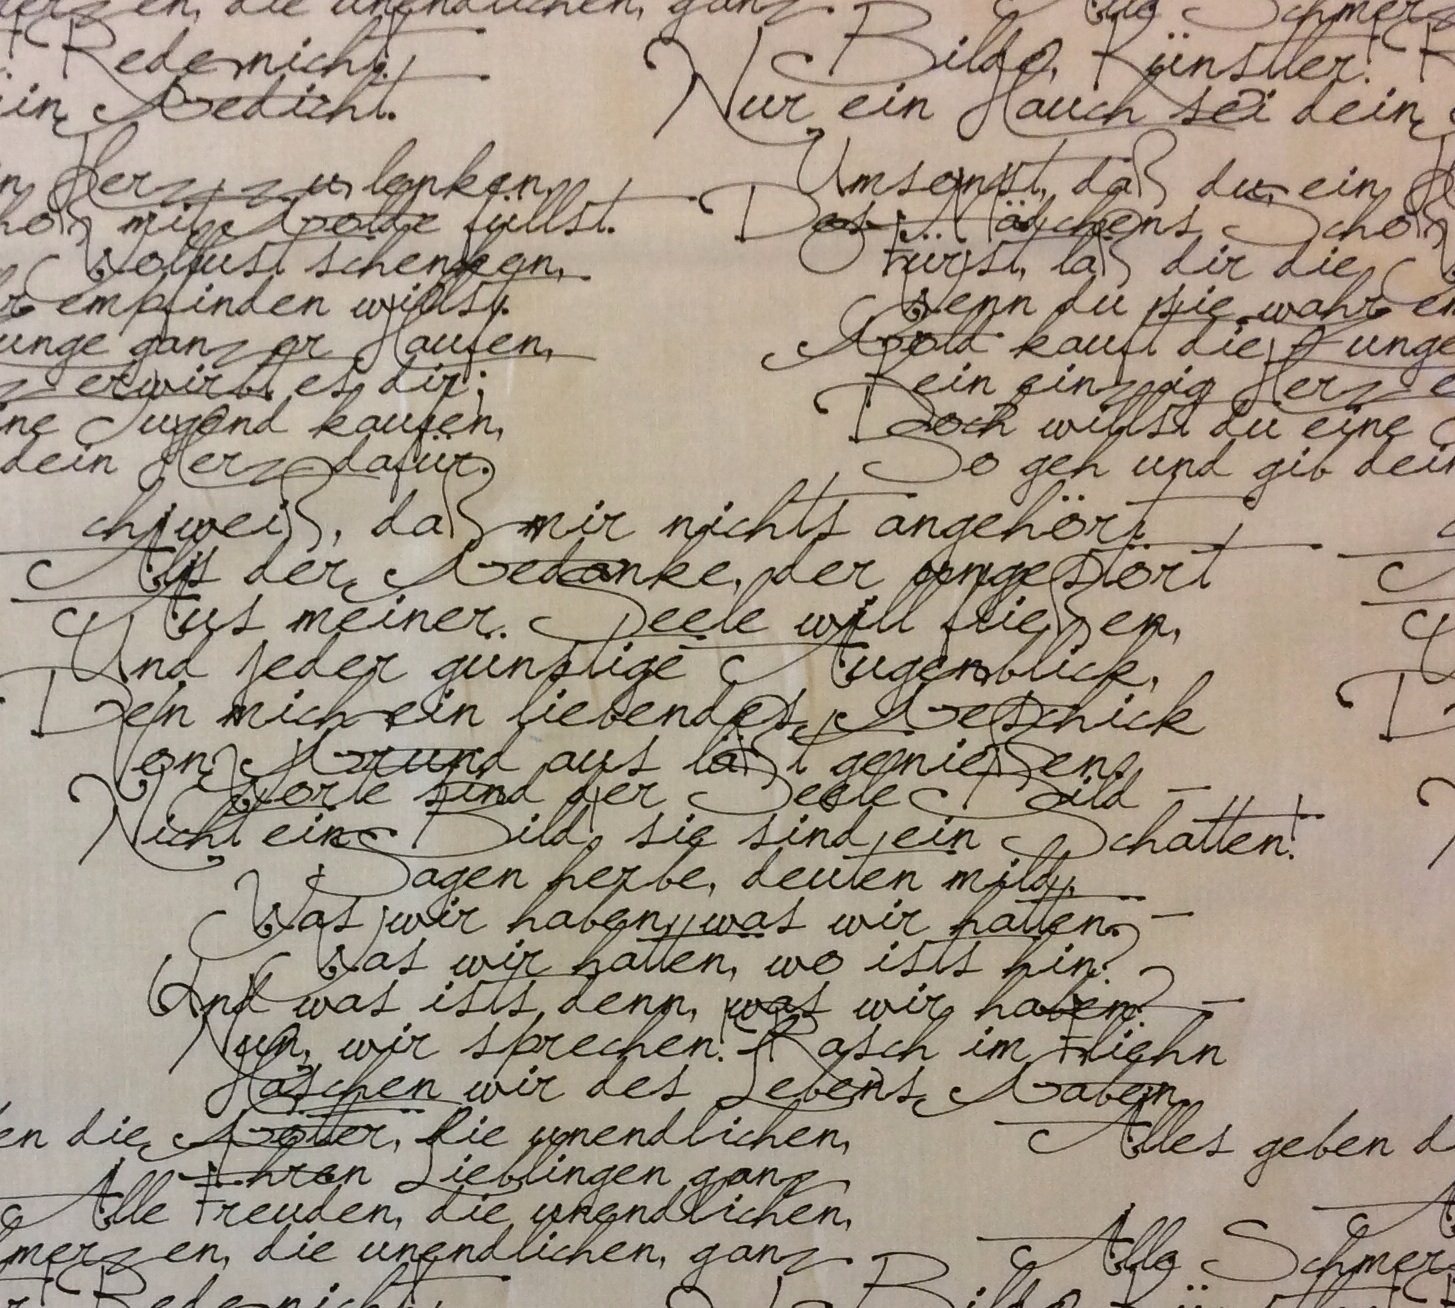 erzen, die unendlichen, ganz.
Rede nicht!
ein Gedicht.
n Herz zu lenken,
hoß mit Golde füllst.
Wollust schenken,
r empfinden willst.
unge ganzer Haufen,
z erwirbt es dir;
ne Tugend kaufen,
dein Herz dafür.
Alle Schmerz
Bilde, Künstler! R
Nur ein Hauch sei dein
Umsonst, daß du, ein H
Des Mädchens Schoß
Fürst, laß dir die
Wenn du sie wahr em
Gold kauft die Zunge
Kein einzig Herz e
Doch willst du eine
So geh und gib dein
ch weiß, daß mir nichts angehört
Als der Gedanke, der ungestört
Aus meiner Seele will fließen,
Und jeder günstige Augenblick,
Den mich ein liebendes Geschick
Von Grund aus läßt genießen.
Worte sind der Seele Bild –
Nicht ein Bild, sie sind ein Schatten!
Sagen herbe, deuten mild,
Was wir haben, was wir hatten. –
Was wir hatten, wo ists hin?
Und was ists denn, was wir haben? –
Nun, wir sprechen! Rasch im Fliehn
Haschen wir des Lebens Gaben.
en die Götter, die unendlichen,
Ihren Lieblingen ganz
Alle Freuden, die unendlichen,
merzen, die unendlichen, ganz.
Rede nicht!
Alles geben d
Alle Schmer
Bilde, Künstler